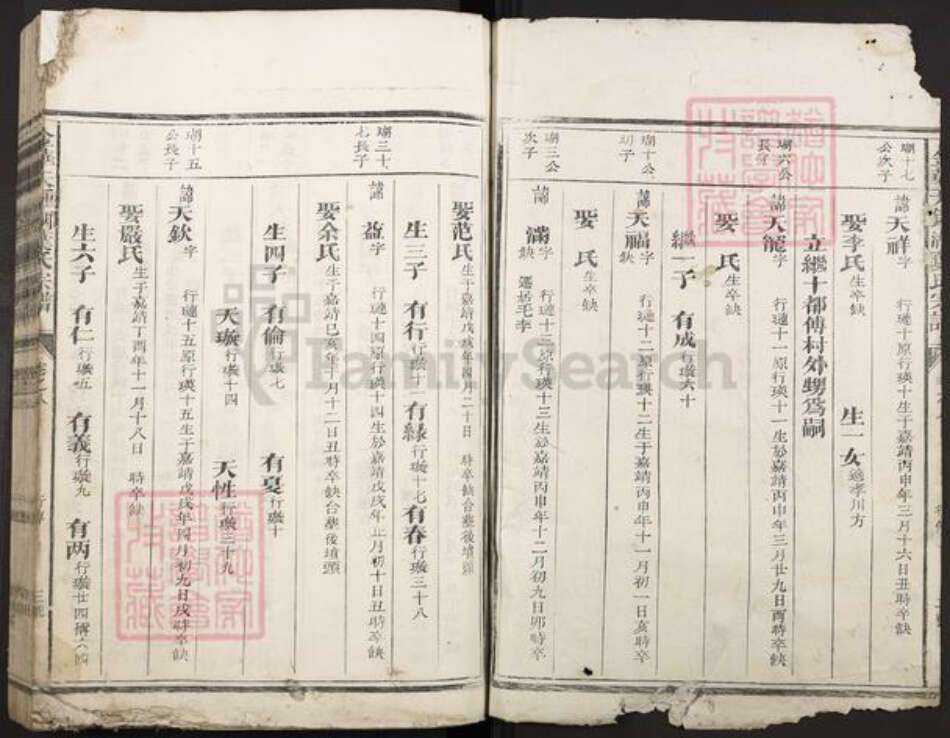 瑚十七
公次子
諱天祥字 行璉十原行瑛十生于嘉靖丙申年三月十六日丑時卒缺
娶李氏生卒缺 生一女適孝川方
立繼十都傅村外甥為嗣
瑚六公
長子
諱天龍字 行璉十一原行瑛十一生於嘉靖丙申年三月廿九日丙時卒缺
娶 氏生卒缺
繼一子 有成行璣六十
瑚十公
幼子
諱天福字缺 行璉十二原行瑛十二生于嘉靖丙申年十一月初一日亥時卒
娶 氏生卒缺
瑚三公
次子
諱滿字缺 行璉十三原行瑛十三生於嘉靖丙申年十二月初九日卯時卒 遷居毛李
娶范氏生于嘉靖戊戌年四月二十日 時卒缺合塟後墳頭
生三子 有行行璣十一 有緣行璣十七 有春行璣三十八
瑚三十
七長子
諱益字 行璉十四原行瑛十四生於嘉靖戊戌年正月初十日丑時卒缺
娶余氏生于嘉靖己亥年十月十二日丑時卒缺合塟後墳頭
生四子 有倫行璣七 有夏行璣十
天璇行璣十四 天性行璣三十九
瑚十五
公長子
諱天欽字 行璉十五原行瑛十五生于嘉靖戊戌年四月初九日戌時卒缺
娶嚴氏生于嘉靖丁酉年十一月十八日 時卒缺
生六子 有仁行璣五 有義行璣九 有兩行璣廿四
氏宗譜